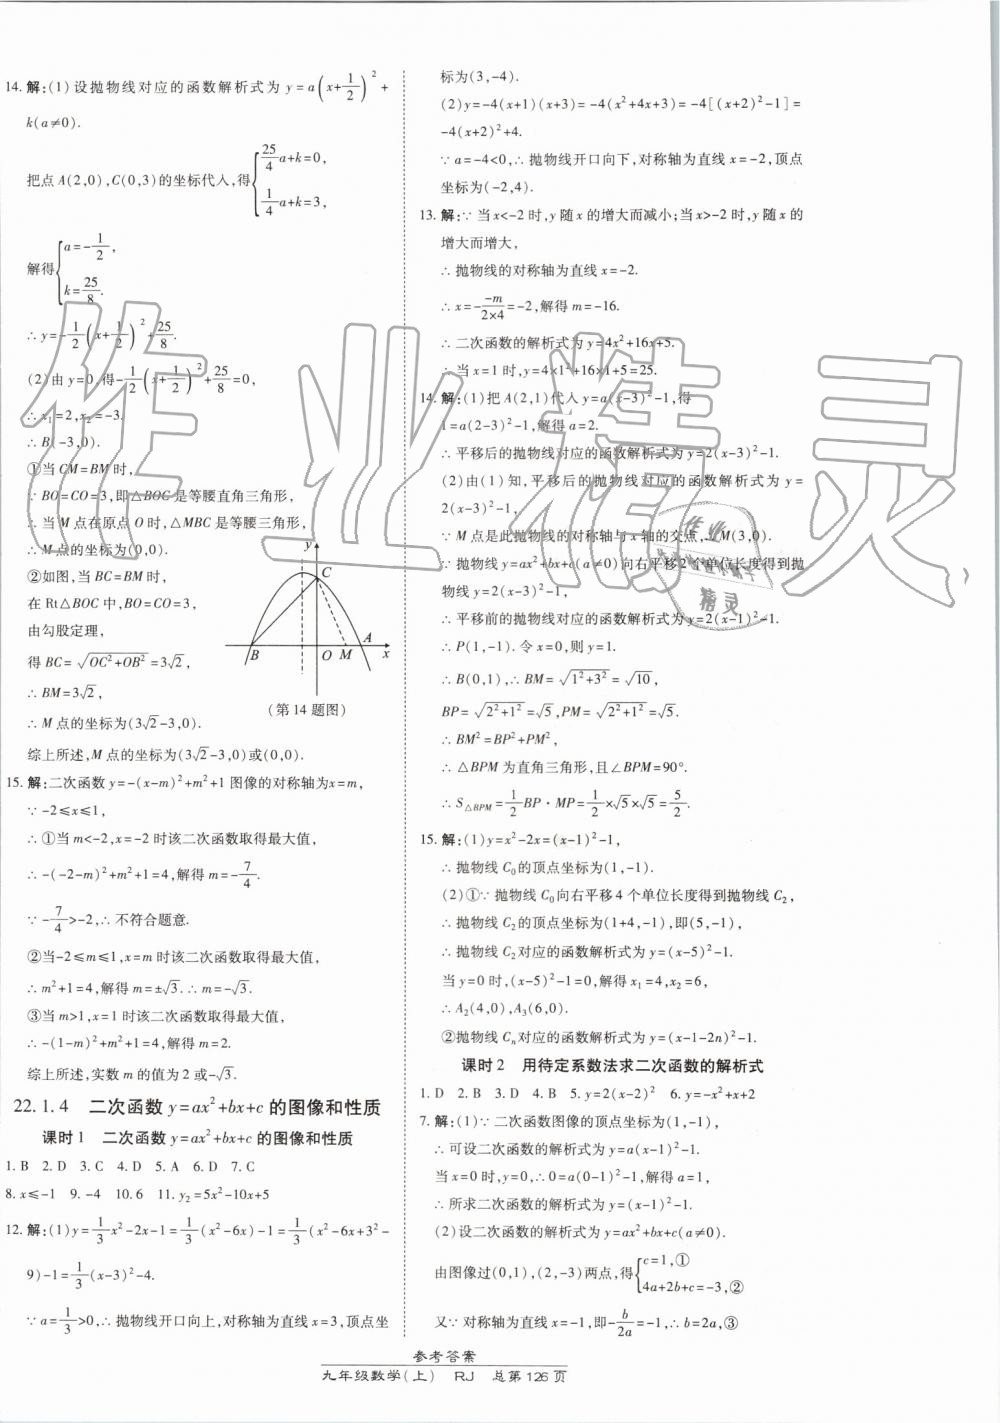 14. 解:(1)设抛物线对应的函数解析式为 y=a(x+1/2)²+
k(a≠0).
把点 A(2,0),C(0,3)的坐标代入,得{25/4a+k=0,
1/4a+k=3,
解得{a=-1/2,
k=25/8.
∴y=-1/2(x+1/2)²+25/8.
(2)由 y=0,得-1/2(x+1/2)²+25/8=0,
∴x₁=2,x₂=-3.
∴B(-3,0).
①当 CM=BM 时,
∵BO=CO=3,即△BOC 是等腰直角三角形,
∴当 M 点在原点 O 时,△MBC 是等腰三角形,
∴M 点的坐标为(0,0).
②如图,当 BC=BM 时,
在 Rt△BOC 中,BO=CO=3,
由勾股定理,
得 BC=√(OC²+OB²)=3√2,
∴BM=3√2,
∴M 点的坐标为(3√2-3,0).
y
C
B O M A x
(第 14 题图)
综上所述,M 点的坐标为(3√2-3,0)或(0,0).
15. 解:二次函数 y=-(x-m)²+m²+1 图像的对称轴为x=m,
∵-2≤x≤1,
∴①当 m<-2,x=-2 时该二次函数取得最大值,
∴-(-2-m)²+m²+1=4,解得 m=-7/4.
∵-7/4>-2,∴不符合题意.
②当-2≤m≤1,x=m 时该二次函数取得最大值,
∴m²+1=4,解得 m=±√3.∴m=-√3.
③当 m>1,x=1 时该二次函数取得最大值,
∴-(1-m)²+m²+1=4,解得 m=2.
综上所述,实数 m 的值为 2 或-√3.
22.1.4 二次函数 y=ax²+bx+c 的图像和性质
课时 1 二次函数 y=ax²+bx+c 的图像和性质
1. B 2. D 3. C 4. D 5. A 6. D 7. C
8. x≤-1 9. -4 10. 6 11. y₂=5x²-10x+5
12. 解:(1)y=1/3x²-2x-1=1/3(x²-6x)-1=1/3(x²-6x+3²-
9)-1=1/3(x-3)²-4.
∵a=1/3>0,∴抛物线开口向上,对称轴为直线 x=3,顶点坐
标为(3,-4).
(2)y=-4(x+1)(x+3)=-4(x²+4x+3)=-4[(x+2)²-1]=
-4(x+2)²+4.
∵a=-4<0,∴抛物线开口向下,对称轴为直线 x=-2,顶点
坐标为(-2,4).
13. 解:∵当 x<-2 时,y 随 x 的增大而减小;当 x>-2 时,y 随 x 的
增大而增大,
∴抛物线的对称轴为直线 x=-2.
∴x=-(-m)/(2×4)=-2,解得 m=-16.
∴二次函数的解析式为 y=4x²+16x+5.
∴当 x=1 时,y=4×1²+16×1+5=25.
14. 解:(1)把 A(2,1)代入 y=a(x-3)²-1,得
1=a(2-3)²-1,解得 a=2.
∴平移后的抛物线对应的函数解析式为 y=2(x-3)²-1.
(2)由(1)知,平移后的抛物线对应的函数解析式为 y=
2(x-3)²-1,
∵M 点是此抛物线的对称轴与 x 轴的交点,∴M(3,0).
∵抛物线 y=ax²+bx+c(a≠0)向右平移 2 个单位长度得到抛
物线 y=2(x-3)²-1,
∴平移前的抛物线对应的函数解析式为 y=2(x-1)²-1.
∴P(1,-1).令 x=0,则 y=1.
∴B(0,1),∴BM=√(1²+3²)=√10,
BP=√(2²+1²)=√5,PM=√(2²+1²)=√5.
∴BM²=BP²+PM²,
∴△BPM 为直角三角形,且∠BPM=90°.
∴S△BPM=1/2BP·MP=1/2×√5×√5=5/2.
15. 解:(1)y=x²-2x=(x-1)²-1,
∴抛物线 C₀的顶点坐标为(1,-1).
(2)①∵抛物线 C₀向右平移 4 个单位长度得到抛物线 C₂,
∴抛物线 C₂的顶点坐标为(1+4,-1),即(5,-1).
∴抛物线 C₂对应的函数解析式为 y=(x-5)²-1.
当 y=0 时,(x-5)²-1=0,解得 x₁=4,x₂=6,
∴A₂(4,0),A₃(6,0).
②抛物线 Cₙ对应的函数解析式为 y=(x-1-2n)²-1.
课时 2 用待定系数法求二次函数的解析式
1. D 2. B 3. D 4. B 5. y=2(x-2)² 6. y=-x²+x+2
7. 解:(1)∵二次函数图像的顶点坐标为(1,-1),
∴可设二次函数的解析式为 y=a(x-1)²-1.
当 x=0 时,y=0,∴0=a(0-1)²-1,解得 a=1,
∴所求二次函数的解析式为 y=(x-1)²-1.
(2)设二次函数的解析式为 y=ax²+bx+c(a≠0).
由图像过(0,1),(2,-3)两点,得{c=1,①
4a+2b+c=-3,②
又∵对称轴为直线 x=-1,即-b/2a=-1,∴b=2a,③
参考答案
九年级数学(上) RJ 总第 126 页
作业精灵
作业
精灵